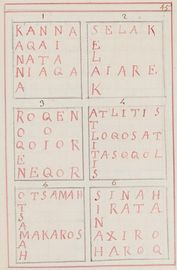 45
1
KANNA
AQAI
NATA
NIAQA
A
2
SELAK
E
L
AIARE
K
3
ROQEN
O O
QOIOR
E
NEQOR
4
ATLITIS
T
LOQOSAT
I
TASQQOL
I
S
5
OTSAMAH
T
S
A
MAKAROS
A
H
6
SINAH
IRATAN
N
AXIRO
HAROQ